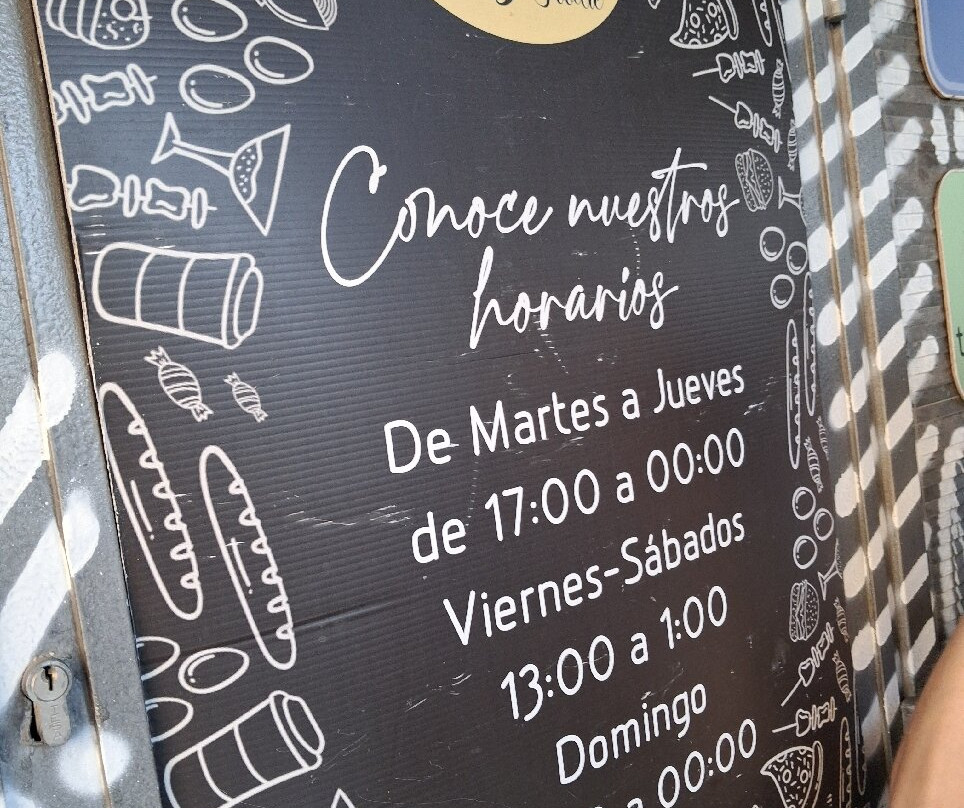 Conoce nuestros
horarios
De Martes a Jueves
de 17:00 a 00:00
Viernes-Sábados
13:00 a 1:00
Domingo
a 00:00